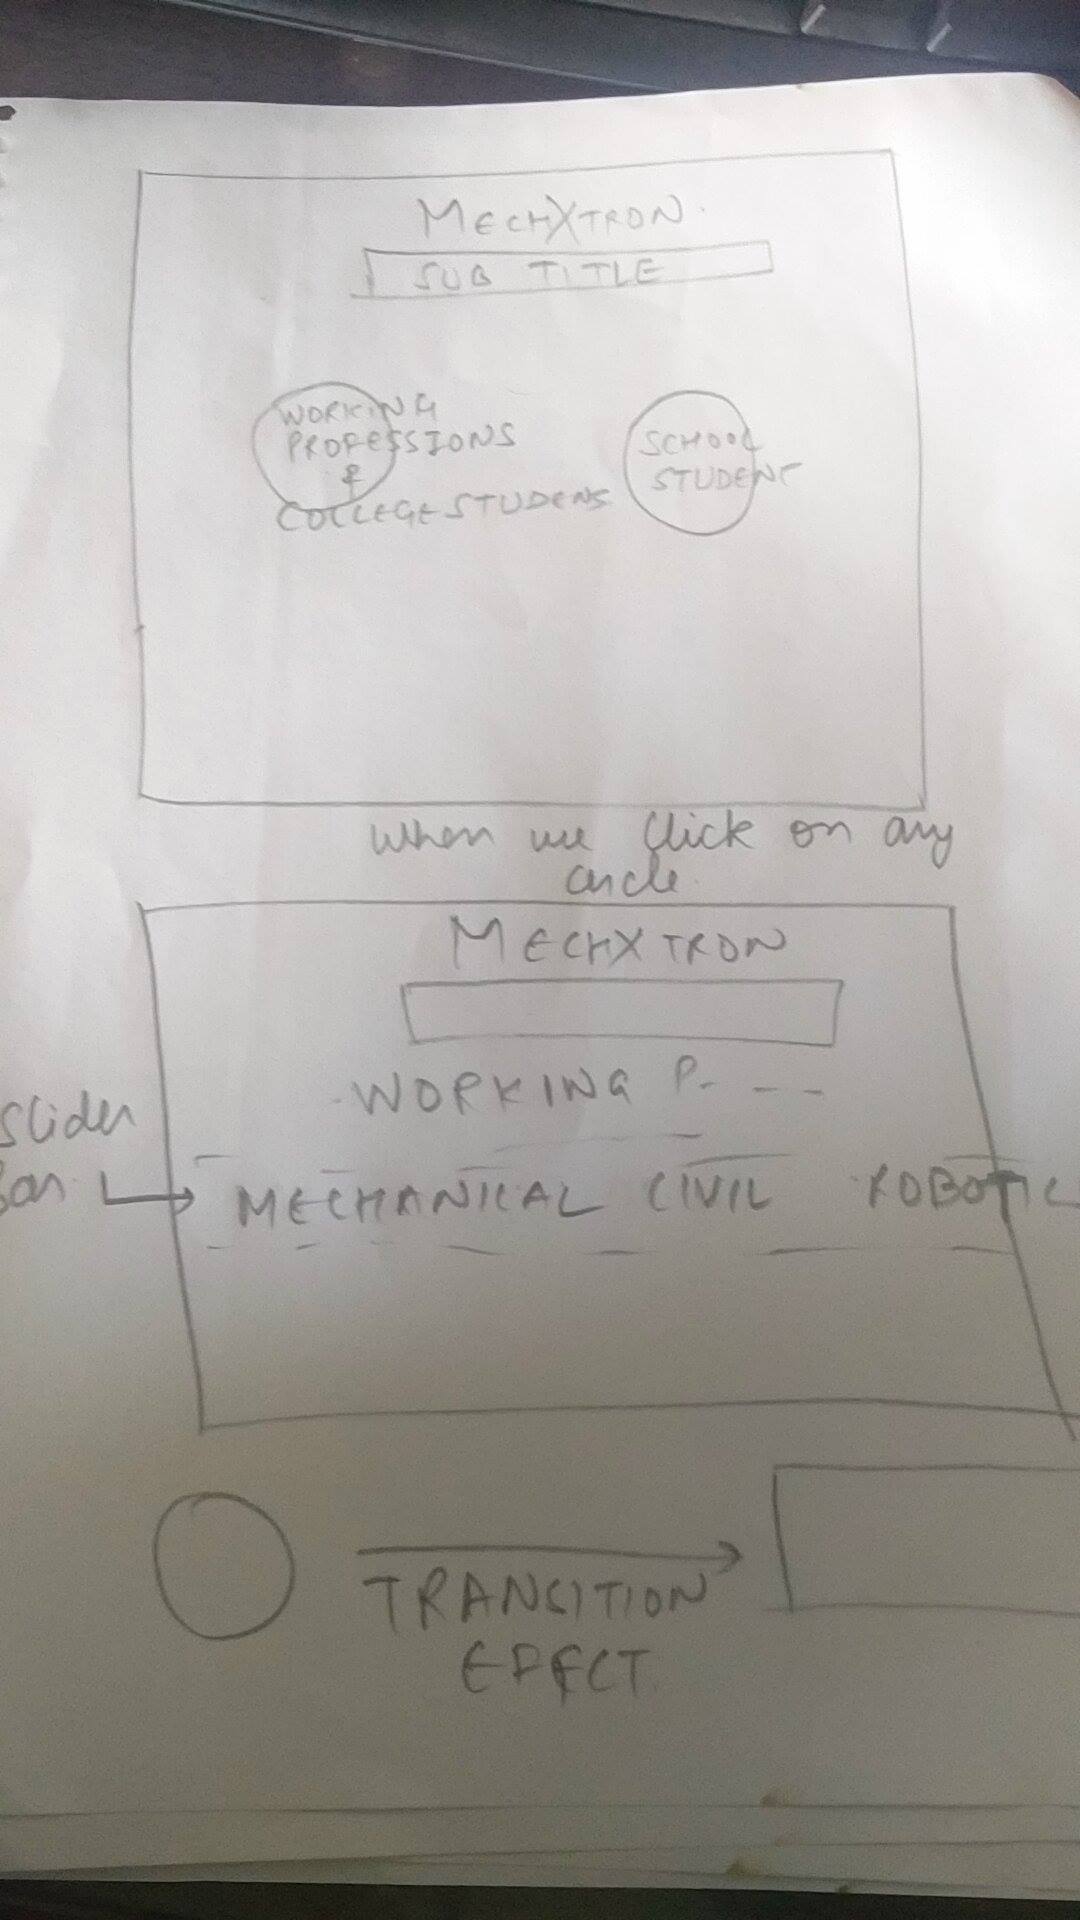 MECHXTRON.
SUB TITLE
WORKING
PROFESSIONS
&
COLLEGE STUDENS
SCHOOL
STUDENT
When we Click on any
circle.
MECHXTRON
WORKING P. - - -
Slider
MECHANICAL CIVIL ROBOTIC
TRANSITION
EFFECT